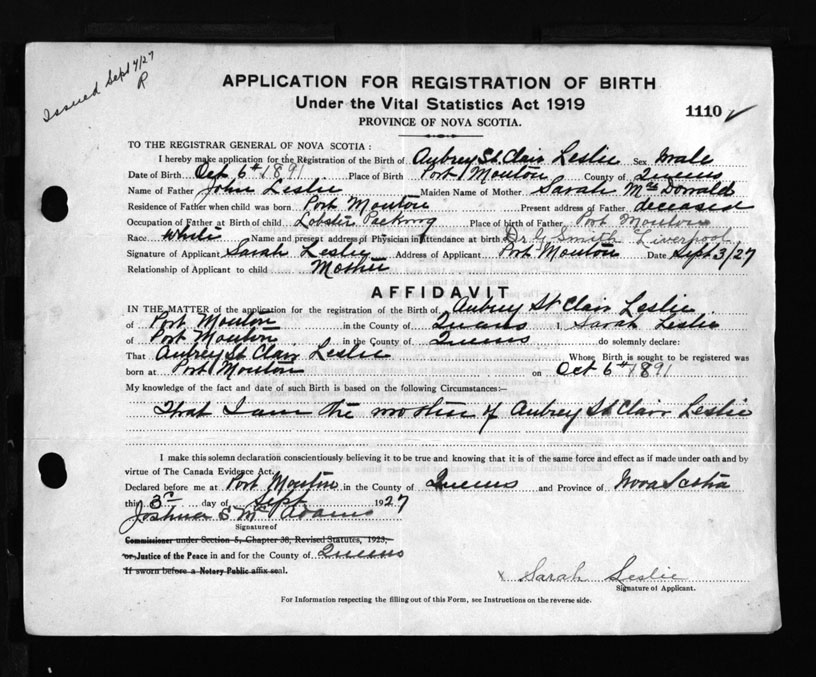 Issued Sept 4/27
R
APPLICATION FOR REGISTRATION OF BIRTH
Under the Vital Statistics Act 1919
1110 ✓
PROVINCE OF NOVA SCOTIA.
TO THE REGISTRAR GENERAL OF NOVA SCOTIA :
I hereby make application for the Registration of the Birth of Aubrey St. Clair Leslie Sex Male
Date of Birth Oct 6th 1891 Place of Birth Port Mouton County of Queens
Name of Father John Leslie Maiden Name of Mother Sarah McDonald
Residence of Father when child was born Port Mouton Present address of Father deceased
Occupation of Father at Birth of child Lobster Packing Place of birth of Father Port Mouton
Race White Name and present address of Physician in Attendance at birth Dr. G. Smith Liverpool
Signature of Applicant Sarah Leslie Address of Applicant Port Mouton Date Sept 3/27
Relationship of Applicant to child Mother
AFFIDAVIT
IN THE MATTER of the application for the registration of the Birth of Aubrey St Clair Leslie
of Port Mouton in the County of Queens I, Sarah Leslie
of Port Mouton in the County of Queens do solemnly declare:
That Aubrey St. Clair Leslie Whose Birth is sought to be registered was
born at Port Mouton on Oct 6th 1891
My knowledge of the fact and date of such Birth is based on the following Circumstances:—
That I am the mother of Aubrey St Clair Leslie
I make this solemn declaration conscientiously believing it to be true and knowing that it is of the same force and effect as if made under oath and by
virtue of The Canada Evidence Act.
Declared before me at Port Mouton in the County of Queens and Province of Nova Scotia
this 3rd day of Sept 1927
Joshua S McAdams
Signature of
Commissioner under Section 5, Chapter 38, Revised Statutes, 1923,
or Justice of the Peace in and for the County of Queens
If sworn before a Notary Public affix seal.
x Sarah Leslie
Signature of Applicant.
For Information respecting the filling out of this Form, see Instructions on the reverse side.